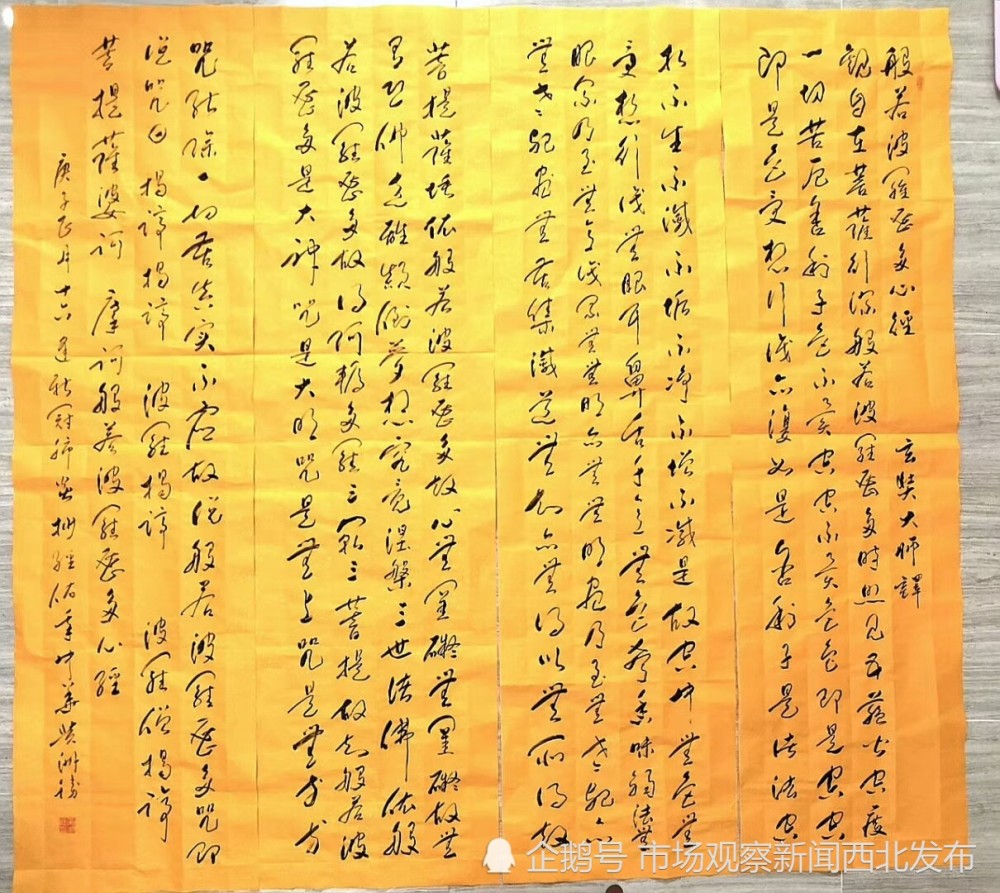 般若波羅蜜多心經 玄奘大师譯
觀自在菩薩行深般若波羅蜜多時照見五蘊皆空度
一切苦厄舍利子色不異空空不異色色即是空空
即是色受想行識亦復如是舍利子是诸法空
相不生不滅不垢不净不增不减是故空中無色無
受想行識無眼耳鼻舌身意無色声香味觸法無
眼界乃至無意識界無無明亦無無明盡乃至無老死亦
無老死盡無苦集滅道無智亦無得以無所得故
菩提薩埵依般若波羅蜜多故心無罣礙無罣礙故無
有恐怖遠離顛倒夢想究竟涅槃三世诸佛依般
若波羅蜜多故得阿耨多羅三藐三菩提故知般若波
羅蜜多是大神咒是大明咒是無上咒是無等等
咒能除一切苦真实不虚故说般若波羅蜜多咒即
说咒曰 揭諦揭諦 波羅揭諦 波羅僧揭諦
菩提薩婆訶 摩訶般若波羅蜜多心經
庚子正月十六逢新冠肺炎抄經佑
企鹅号 市场观察新闻西北发布